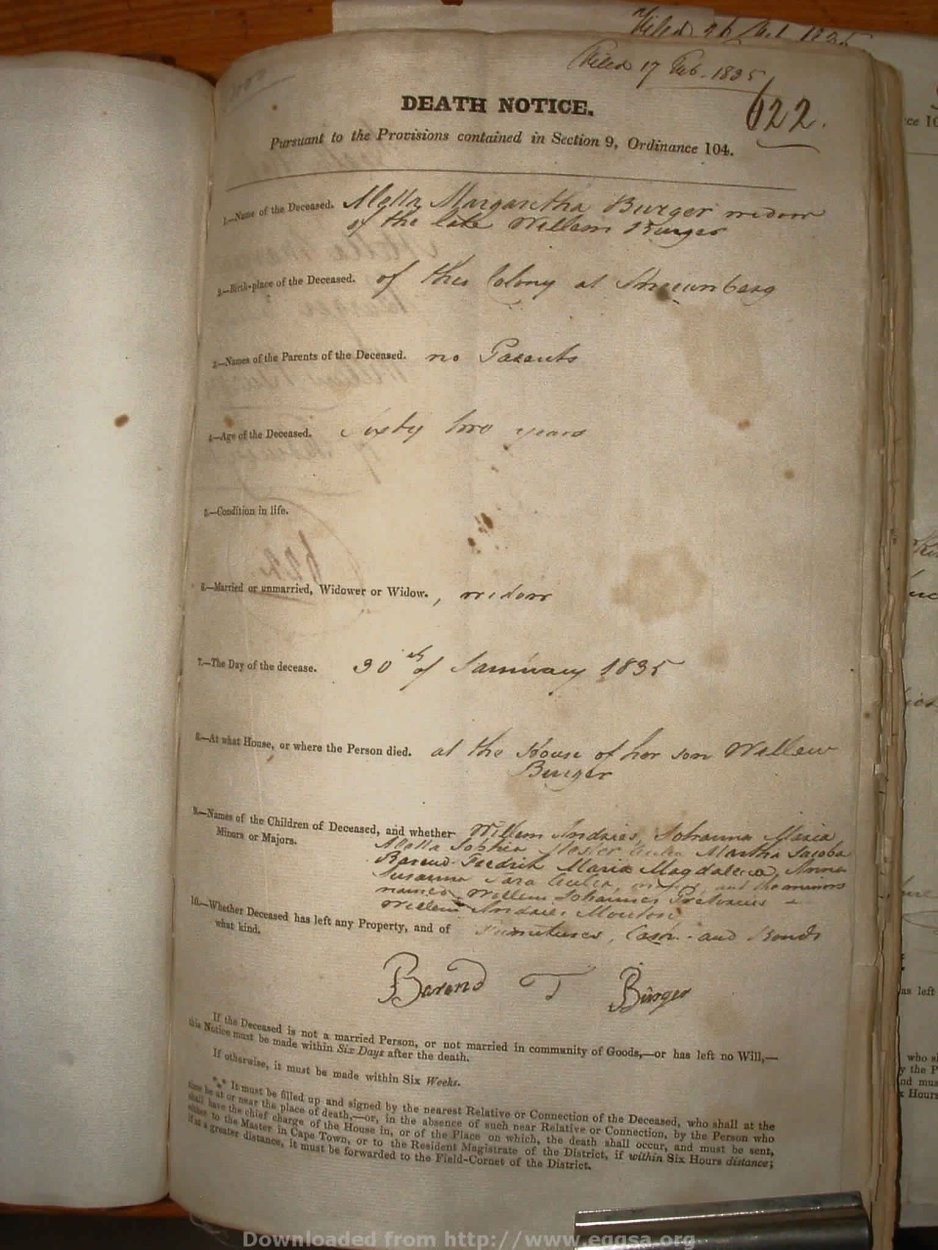 Filed 17 Feb. 1835
622.
DEATH NOTICE.
Pursuant to the Provisions contained in Section 9, Ordinance 104.
1.—Name of the Deceased. Margaretha Burger widow
of the late Willem Burger
2.—Birth-place of the Deceased. of this Colony at
3.—Names of the Parents of the Deceased. no Parents
4.—Age of the Deceased. Sixty two years
5.—Condition in life.
6.—Married or unmarried, Widower or Widow. , widow
7.—The Day of the decease. 30th of January 1835
8.—At what House, or where the Person died. at the House of her son Willem
Burger
9.—Names of the Children of Deceased, and whether Willem Andries, Johanna Maria
Minors or Majors. Sophia Hester Martha Jacoba
Barend Fredrik Maria Magdalena, Anna
Susanna Sara and the minors
named Willem Johannes Pretorius
Willem Andries Mouton
10.—Whether Deceased has left any Property, and of Furnitures, Cash and Bonds
what kind.
Barend F Burger
If the Deceased is not a married Person, or not married in community of Goods,—or has left no Will,—
this Notice must be made within Six Days after the death.
If otherwise, it must be made within Six Weeks.
*** It must be filled up and signed by the nearest Relative or Connection of the Deceased, who shall at the
time be at or near the place of death,—or, in the absence of such near Relative or Connection, by the Person who
shall have the chief charge of the House in, or of the Place on which, the death shall occur, and must be sent,
either to the Master in Cape Town, or to the Resident Magistrate of the District, if within Six Hours distance;
if at a greater distance, it must be forwarded to the Field-Cornet of the District.
Downloaded from http://www.eggsa.org